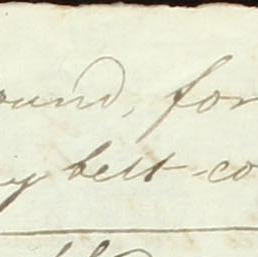 ound, for
y belt-co